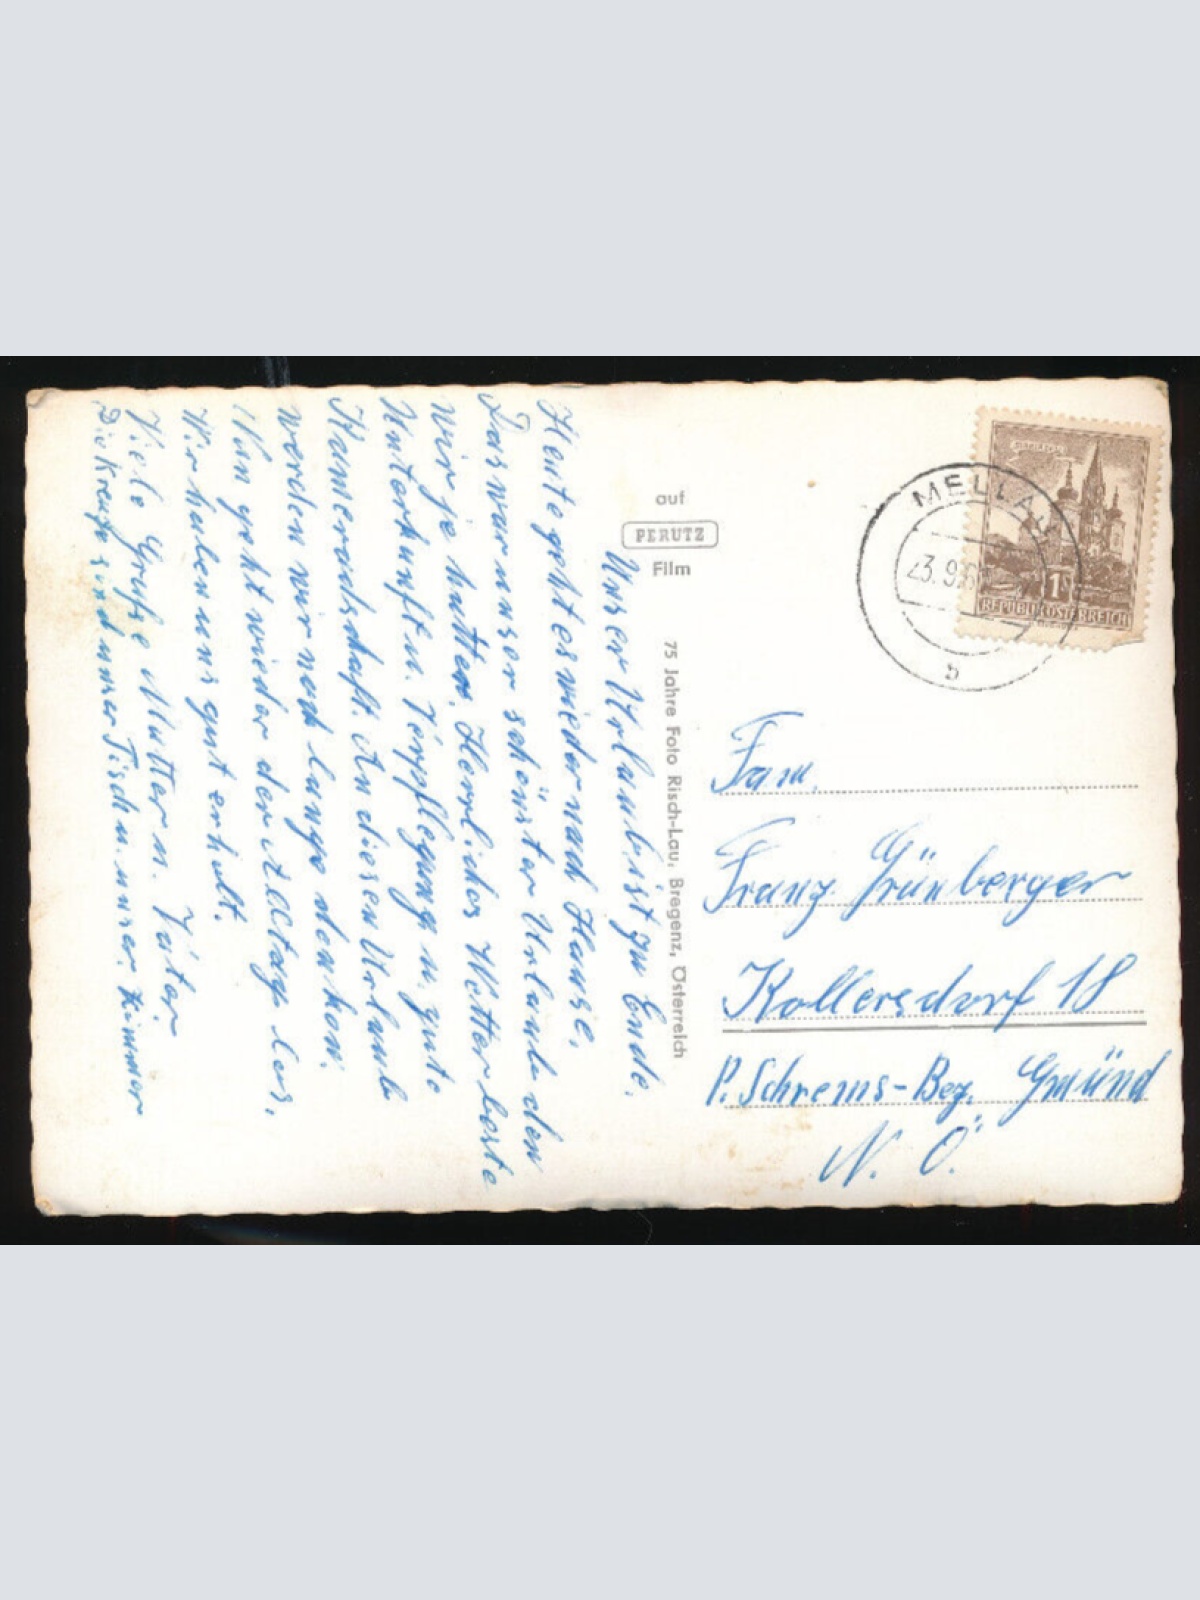 Unser Urlaub ist zu Ende.
Heute geht es wieder nach Hause,
Das war unser schönster Urlaub den
wir je hatten. Herrliches Wetter beste
Unterkunft u. Verpflegung u. gute
Kameradschaft. An diesen Urlaub
werden wir noch lange denken.
Nun geht wieder der Alltag los.
Wir haben uns gut erholt.
Viele Grüße Mutter u. Vater
Die Kreuze sind unser Tisch u. unser Zimmer
auf
PERUTZ
Film
75 Jahre Foto Risch-Lau, Bregenz, Österreich
MELLAU
23.9.6
b
MARIAZELL
1S
REPUBLIK ÖSTERREICH
Fam.
Franz Grünberger
Kollersdorf 18
P. Schrems-Bez. Gmünd
N. Ö.